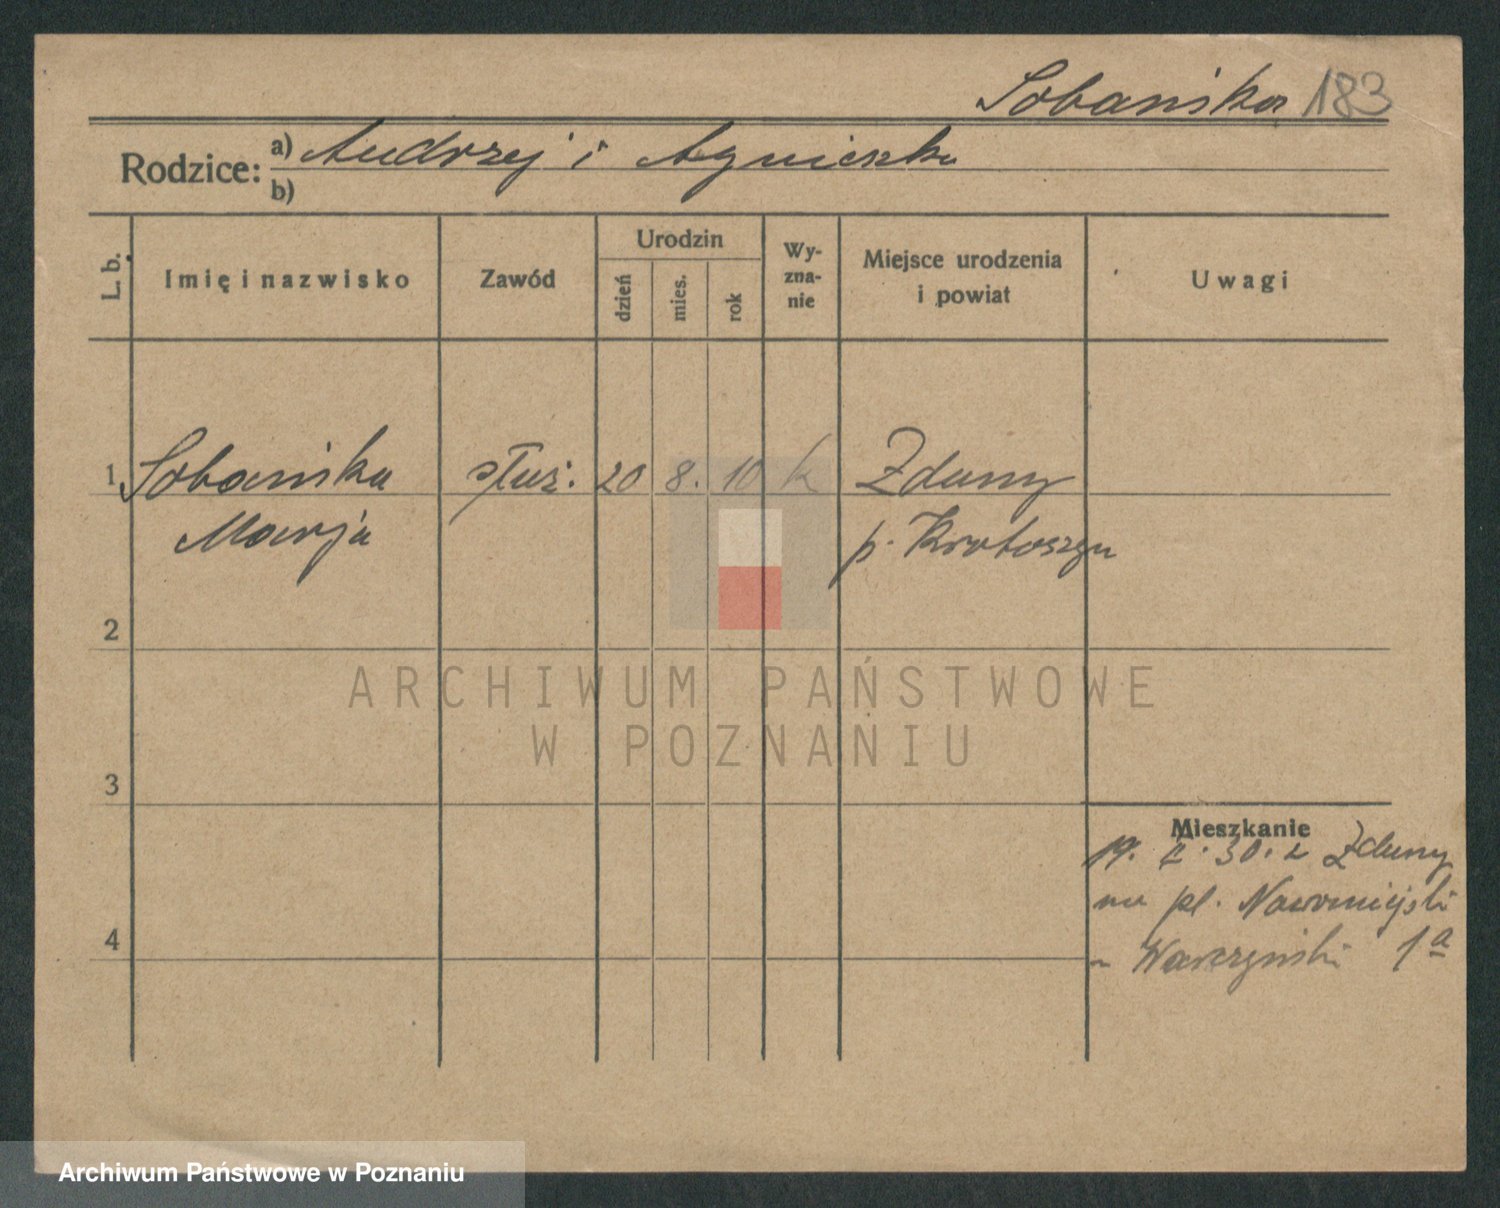 Sobańska 183
Rodzice: a) Andrzej i Agnieszka
b)
L. b.
Imię i nazwisko
Zawód
Urodzin
dzień
mies.
rok
Wy-
zna-
nie
Miejsce urodzenia
i powiat
Uwagi
1 Sobańska służ. 20 8. 10 k Zduny
Marja p. Krotoszyn
2
3
4
Mieszkanie
30. z Zduny
na pl. Nowomiejski
Wawrzyński 1a
ARCHIWUM PAŃSTWOWE
W POZNANIU
Archiwum Państwowe w Poznaniu